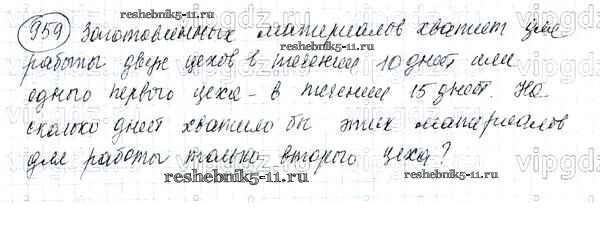 959) Заготовленных материалов хватит для
работы двух цехов в течении 10 дней или
одного первого цеха - в течении 15 дней. На
сколько дней хватило бы этих материалов
для работы только второго цеха?
reshebnik5-11.ru
reshebnik5-11.ru
reshebnik5-11.ru
vipgdz
vipgdz
vipgdz